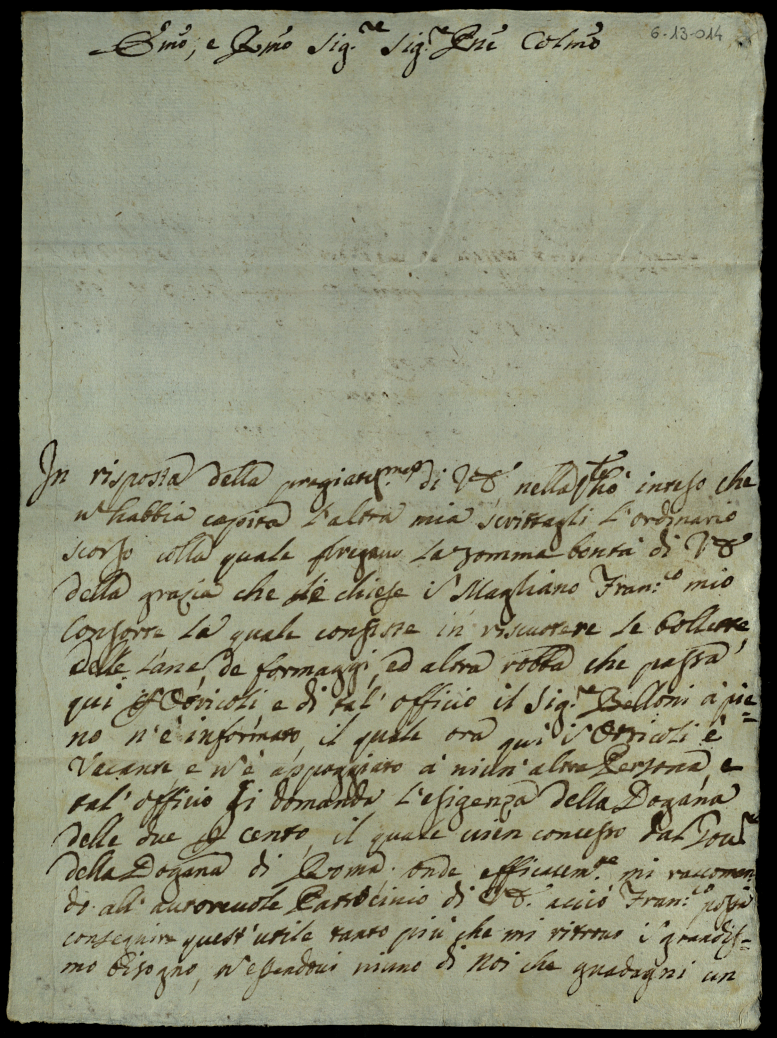 6-13-014
Emo, e Rmo Sig.re Sig.re Pne Colmo
In risposta della pregiatis.ma di VE nella hò inteso che
habbia capita l'altra mia scrittagli l'ordinario
scorso colla quale pregavo la somma bontà di VE
della grazia che le chiese Magliano Fran.co mio
Consorte la quale consiste in riscuotere le bollette
delle lane, de formaggi, ed altra robba che passa
qui Otricoli e di tal' officio il Sig.re Belloni à pie=
no n'è informato, il quale ora qui Otricoli è
Vacante, e n'è appoggiato à niun' altra Persona, e
tal' officio si domanda l'esigenza della Dogana
delle due p cento, il quale vien concesso dal
della Dogana di Roma. onde efficacem.te mi raccoman
do all' autorevole Patrocinio di VE. acciò Fran.co possa
conseguire quest' utile tanto più che mi ritrovo grandis=
mo bisogno, n'essendovi niuno di Noi che guadagni un